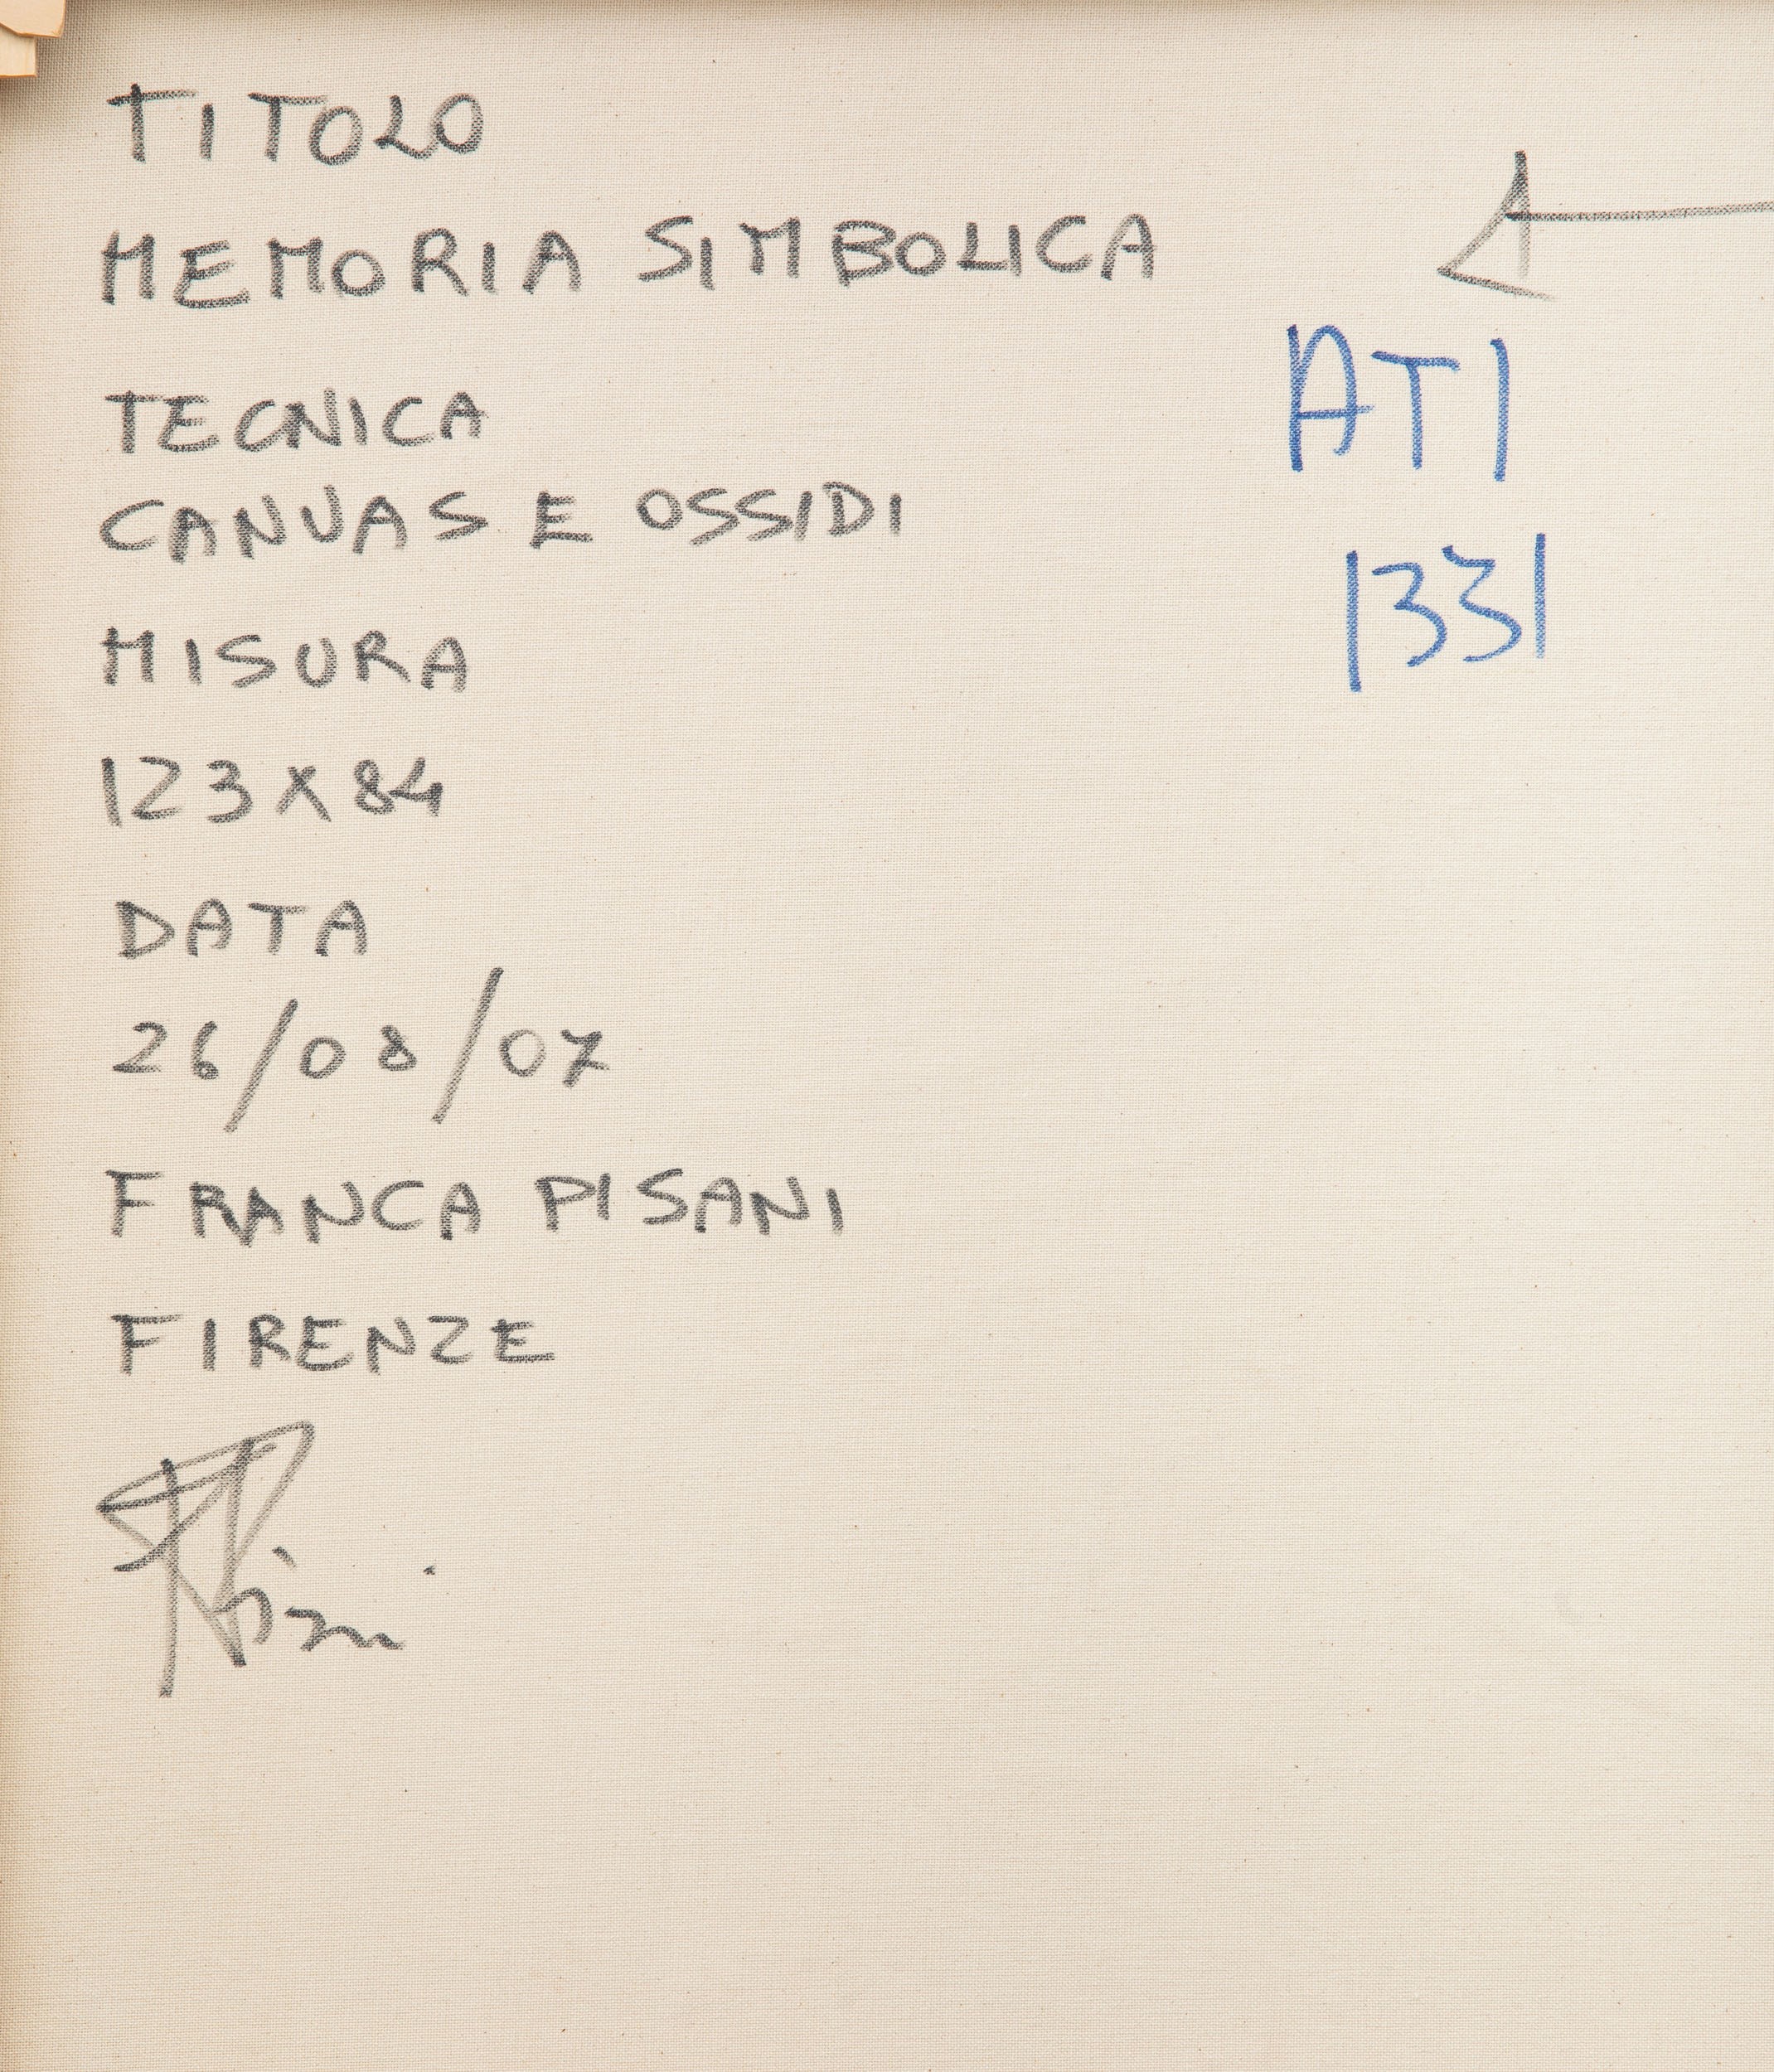 TITOLO
MEMORIA SIMBOLICA
TECNICA
CANVAS E OSSIDI
MISURA
123 X 84
DATA
26/08/07
FRANCA PISANI
FIRENZE
ATI
1331